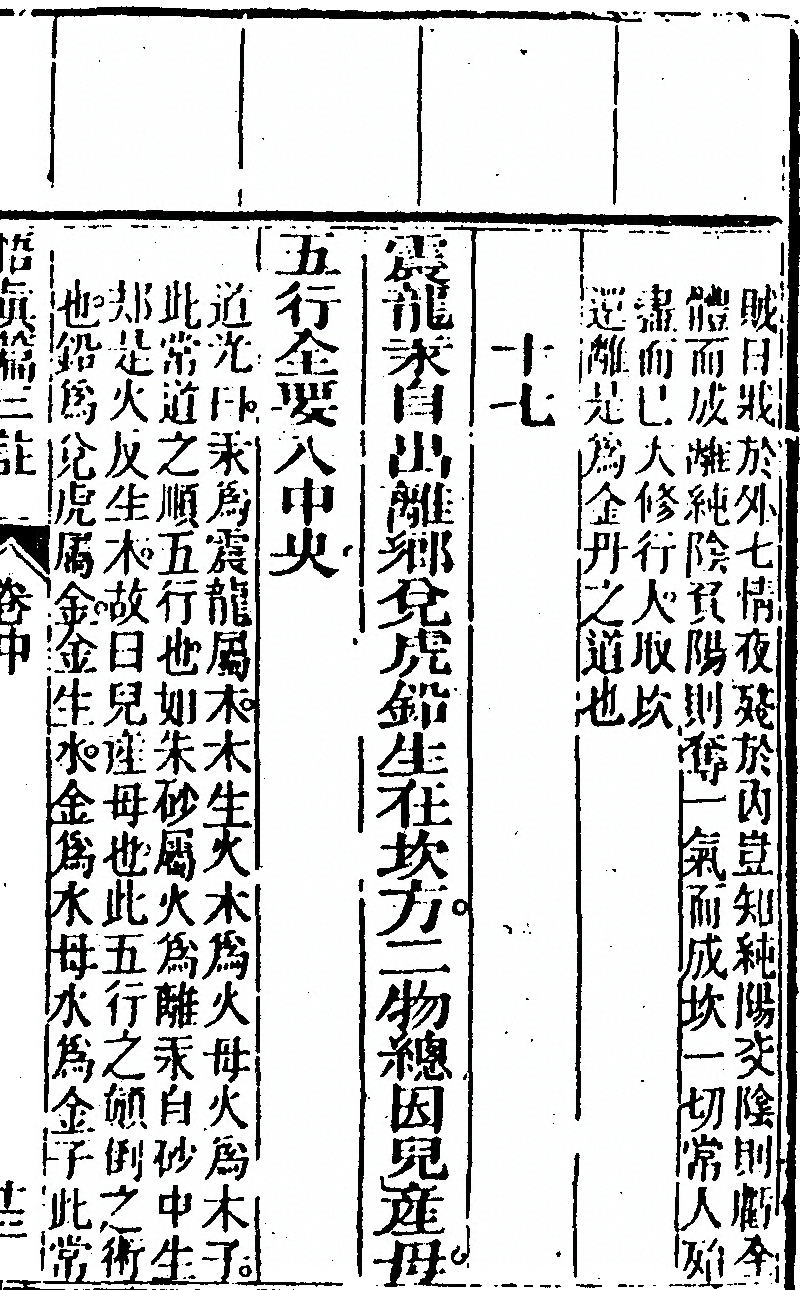 賊日戕於外七情夜殘於內豈知純陽交陰則虧本
體而成離純陰負陽則奪一氣而成坎一切常人殆
盡而已大修行人取坎
還離是爲金丹之道也
十七
震龍汞自出離鄉兌虎鉛生在坎方二物總因兒產母
五行全要入中央
道光曰汞爲震龍屬木木生火木爲火母火爲木子
此常道之順五行也如朱砂屬火爲離汞自砂中生
却是火反生木故曰兒產母也此五行之顛倒之術
也鉛爲兌虎屬金金生水金爲水母水爲金子此常
悟真篇三註 卷中 廿三